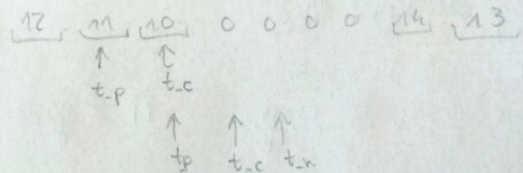 12 11 10 0 0 0 0 14 13
t_p t_c
tp t_c t_n